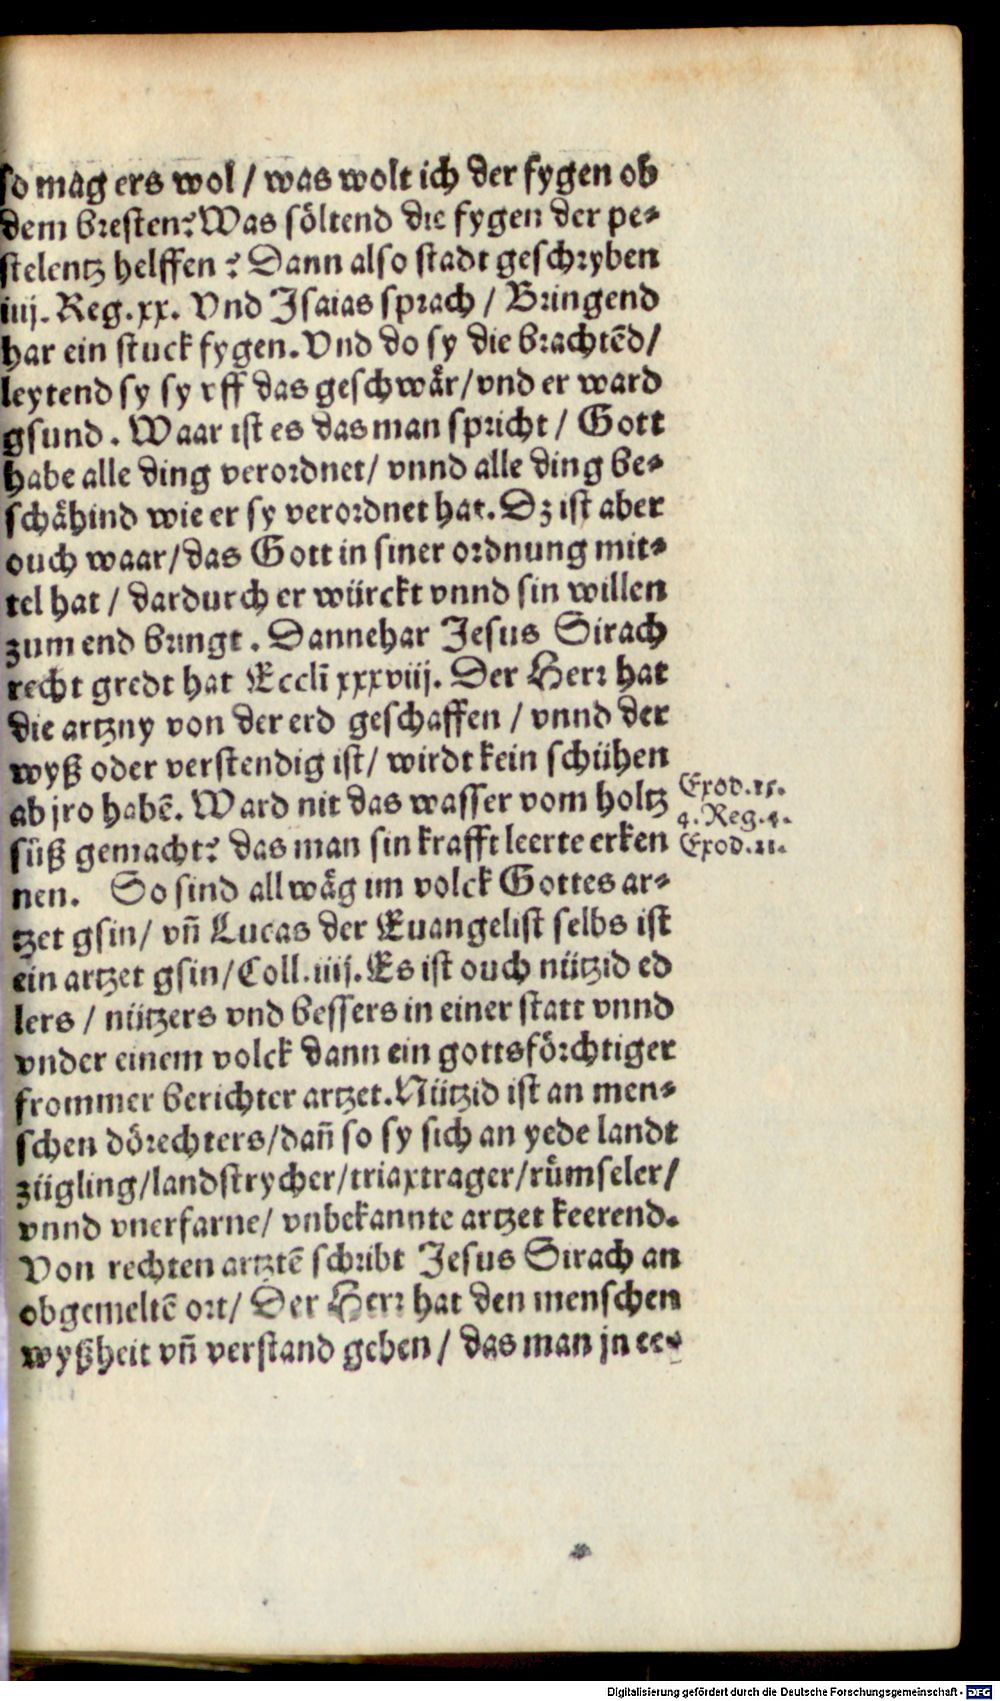 so mag ers wol / was wolt ich der fygen ob
dem bresten? Was söltend die fygen der pe⸗
stelentz helffen? Dann also stadt geschryben
iiij. Reg. xx. Vnd Isaias sprach / Bringend
har ein stuck fygen. Vnd do sy die brachtẽd /
leytend sy sy vff das geschwår / vnd er ward
gsund. Waar ist es das man spricht / Gott
habe alle ding verordnet / vnnd alle ding be⸗
schåhind wie er sy verordnet hat. Dz ist aber
ouch waar / das Gott in siner ordnung mit⸗
tel hat / dardurch er würckt vnnd sin willen
zum end bringt. Dannehar Jesus Sirach
recht gredt hat Eccli xxxviij. Der Herr hat
die artzny von der erd geschaffen / vnnd der
wyß oder verstendig ist / wirdt kein schühen
ab jro habẽ. Ward nit das wasser vom holtz
süß gemacht? das man sin krafft leerte erken
nen. So sind allwåg im volck Gottes ar⸗
tzet gsin / vñ Lucas der Euangelist selbs ist
ein artzet gsin / Coll. iiij. Es ist ouch nützid ed
lers / nützers vnd bessers in einer statt vnnd
vnder einem volck dann ein gottsförchtiger
frommer berichter artzet. Nützid ist an men⸗
schen dörechters / dañ so sy sich an yede landt
zügling / landstrycher / triaxtrager / růmseler /
vnnd vnerfarne / vnbekannte artzet keerend.
Von rechten artztẽ schribt Jesus Sirach an
obgemeltẽ ort / Der Herr hat den menschen
wyßheit vñ verstand geben / das man jn ee⸗
Exod. 15.
4. Reg. 4.
Exod. 21.
Digitalisierung gefördert durch die Deutsche Forschungsgemeinschaft - DFG